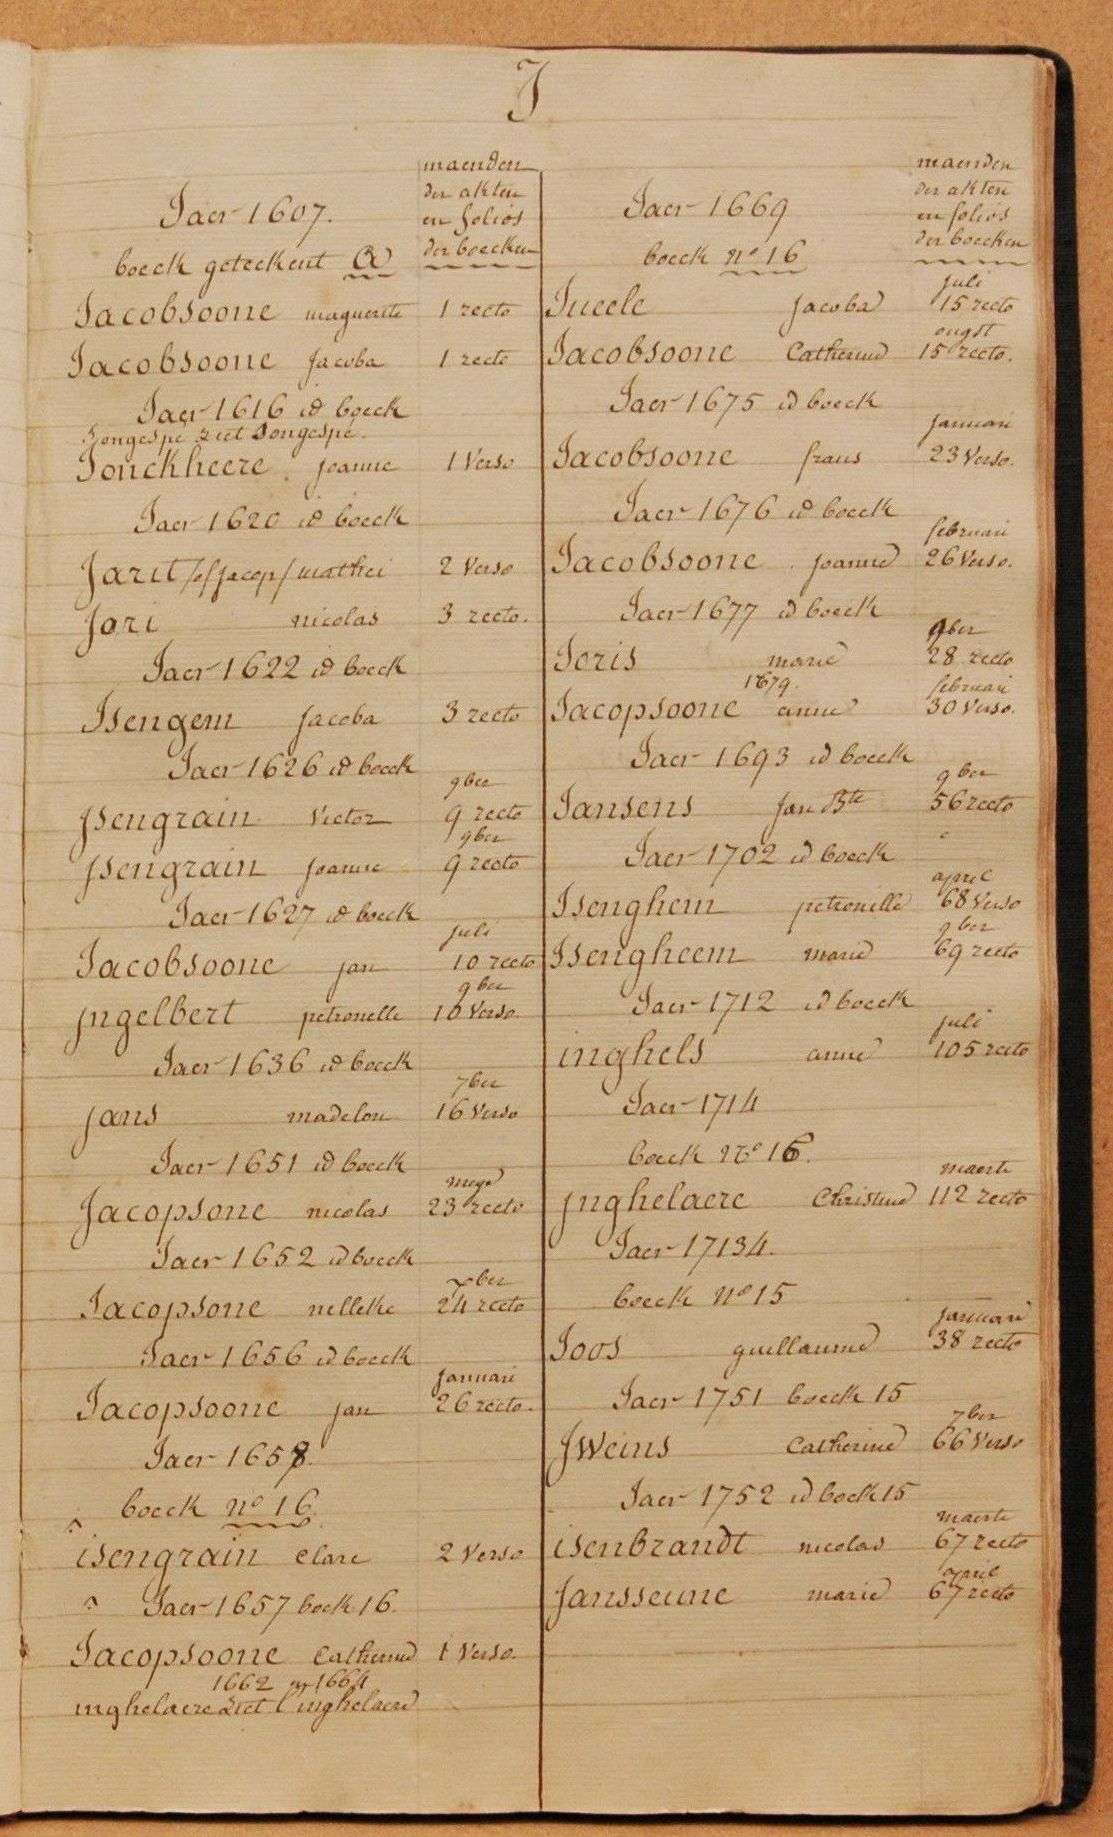 J
maenden
der akten
en folios
der boecken
Jaer 1607.
boeck geteekent A
Jacobsoone maguerite 1 recto
Jacobsoone Jacoba 1 recto
Jaer 1616 id boeck
ziet Dongespe.
Jonckheere Joanne 1 Verso
Jaer 1620 id boeck
Jarit /of Jacop/ mathei 2 Verso
Jori nicolas 3 recto.
Jaer 1622 id boeck
Isengem Jacoba 3 recto
Jaer 1626 id boeck
9ber
jsengrain Victor 9 recto
9ber
jsengrain Joanne 9 recto
Jaer 1627 id boeck
juli
Jacobsoone jan 10 recto
9ber
jngelbert petronelle 10 Verso.
Jaer 1636 id boeck
7ber
jans madelon 16 Verso
Jaer 1651 id boeck
meye
Jacopsone nicolas 23 recto
Jaer 1652 id boeck
7ber
Jacopsone nelleke 24 recto
Jaer 1656 id boeck
januari
Jacopsoone jan 26 recto.
Jaer 1658.
boeck no 16.
isengrain Clare 2 Verso
Jaer 1657 boek 16.
Jacopsoone Catherine 1 Verso.
1662 1664
inghelaere ziet l'inghelaere
maenden
der akten
en folios
der boecken
Jaer 1669
boeck no 16
juli
Jueele Jacoba 15 recto
ougst
Jacobsoone Catherine 15 recto.
Jaer 1675 id boeck
januari
Jacobsoone frans 23 Verso.
Jaer 1676 id boeck
februari
Jacobsoone joanne 26 Verso.
Jaer 1677 id boeck
9ber
Joris marie 28 recto
1679. februari
Jacopsoone anne 30 Verso.
Jaer 1693 id boeck
9ber
Jansens Jan Bte 56 recto
Jaer 1702 id boeck
april
Isenghem petronille 68 Verso
9ber
Isengheem marie 69 recto
Jaer 1712 id boeck
juli
inghels anne 105 recto
Jaer 1714
boeck No 16.
maerte
jnghelaere Christine 112 recto
Jaer 17134.
boeck No 15
januari
Joos guillaume 38 recto
Jaer 1751 boeck 15
7ber
Jweins Catherine 66 Verso
Jaer 1752 id boek 15
maerte
isenbrandt nicolas 67 recto
april
Jansseune marie 67 recto